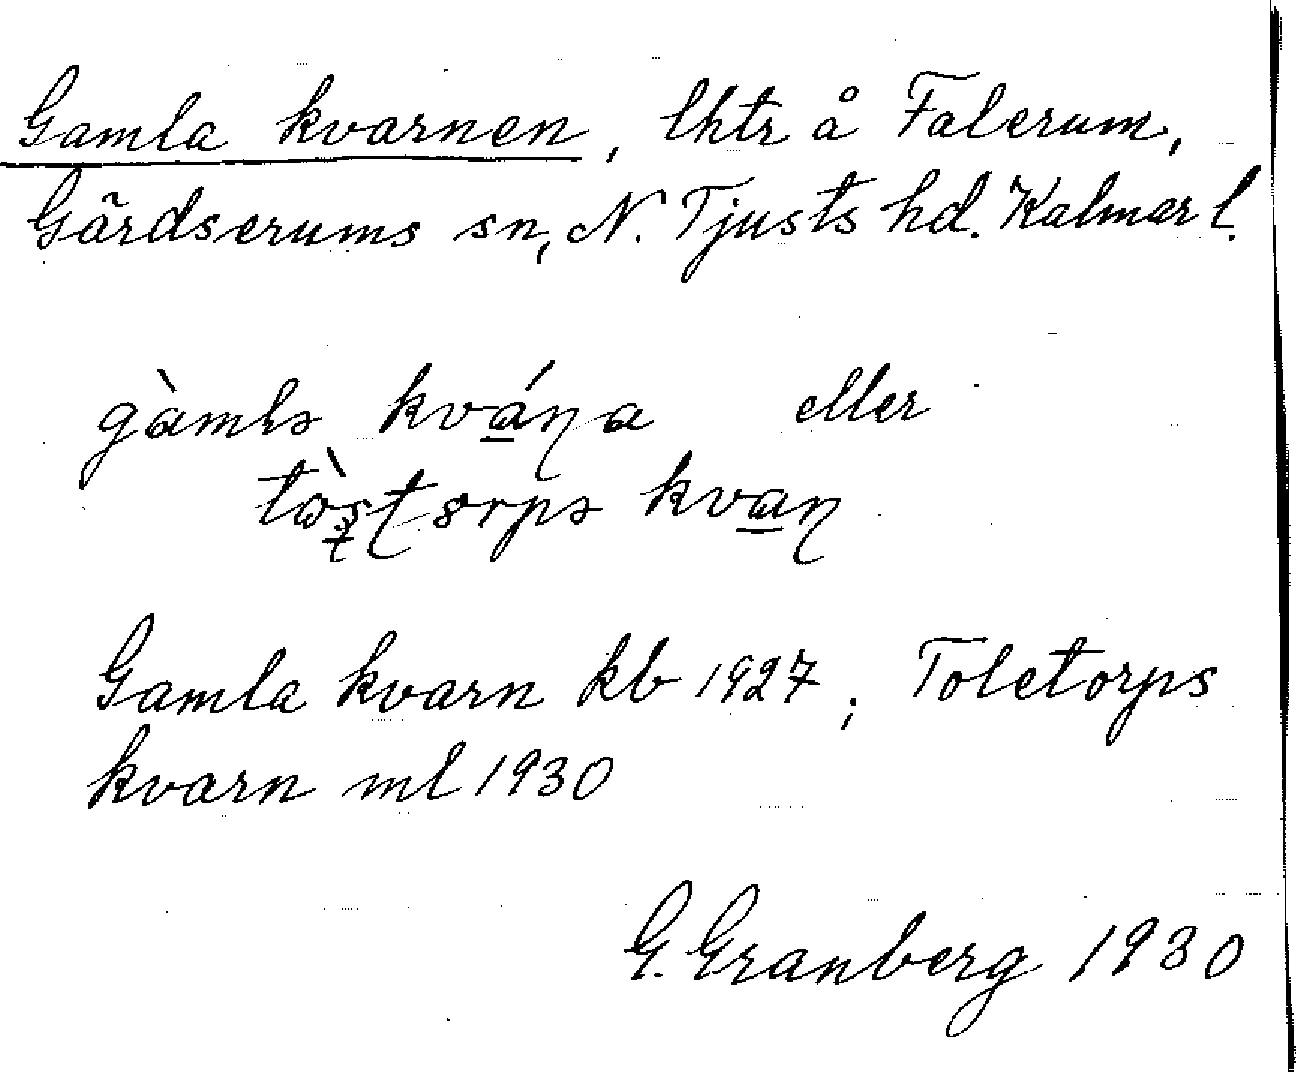 Gamla kvarnen, lhtr å Falerum,
Gärdserums sn, N. Tjusts hd. Kalmar l.
gàmlə kvá̲ɳa eller
tòʂʈorpə kva̲ɳ
Gamla kvarn kb 1927; Toletorps
kvarn ml 1930
G. Granberg 1930